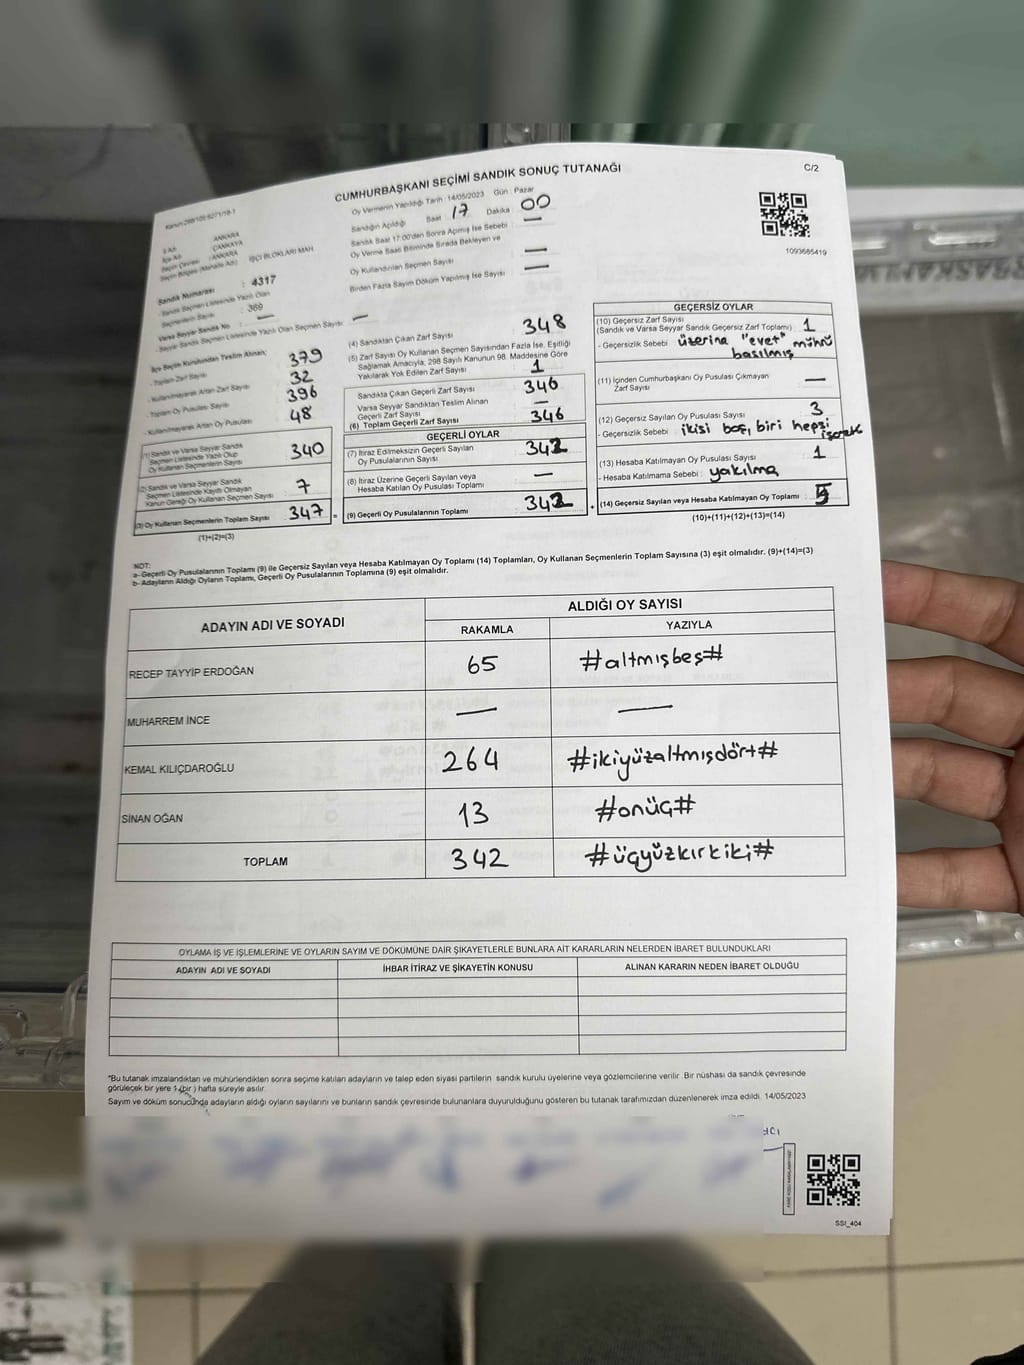 CUMHURBAŞKANI SEÇİMİ SANDIK SONUÇ TUTANAĞI
C/2
Oy Vermenin Yapıldığı Tarih : 14/05/2023 Gün : Pazar
Sandığın Açıldığı Saat 17 Dakika 00
Sandık Saat 17:00'den Sonra Açılmış İse Sebebi : —
Oy Verme Saati Bitiminde Sırada Bekleyen ve
Oy Kullandırılan Seçmen Sayısı —
Birden Fazla Sayım Döküm Yapılmış İse Sayısı —
1093685419
İl Adı : ANKARA
İlçe Adı : ÇANKAYA
Seçim Çevresi : ANKARA
Seçim Bölgesi (Mahalle Adı) : İŞÇİ BLOKLARI MAH
Sandık Numarası : 4317
Sandık Seçmen Listesinde Yazılı Olan
Seçmenlerin Sayısı : 369
Varsa Seyyar Sandık No : —
- Seyyar Sandık Seçmen Listesinde Yazılı Olan Seçmen Sayısı : —
İlçe Seçim Kurulundan Teslim Alınan;
- Toplam Zarf Sayısı 379
- Kullanılmayarak Artan Zarf Sayısı 32
- Toplam Oy Pusulası Sayısı 396
- Kullanılmayarak Artan Oy Pusulası 48
(1) Sandık ve Varsa Seyyar Sandık
Seçmen Listesinde Yazılı Olup
Oy Kullanan Seçmenlerin Sayısı 340
(2) Sandık ve Varsa Seyyar Sandık
Seçmen Listesinde Kayıtlı Olmayan
Kanun Gereği Oy Kullanan Seçmen Sayısı : 7
(3) Oy Kullanan Seçmenlerin Toplam Sayısı : 347 =
(1)+(2)=(3)
(4) Sandıktan Çıkan Zarf Sayısı 348
(5) Zarf Sayısı Oy Kullanan Seçmen Sayısından Fazla İse, Eşitliği
Sağlamak Amacıyla, 298 Sayılı Kanunun 98. Maddesine Göre
Yakılarak Yok Edilen Zarf Sayısı : 1
Sandıkta Çıkan Geçerli Zarf Sayısı : 346
Varsa Seyyar Sandıktan Teslim Alınan
Geçerli Zarf Sayısı : —
(6) Toplam Geçerli Zarf Sayısı : 346
GEÇERLİ OYLAR
(7) İtiraz Edilmeksizin Geçerli Sayılan
Oy Pusulalarının Sayısı : 342
(8) İtiraz Üzerine Geçerli Sayılan veya
Hesaba Katılan Oy Pusulası Toplamı : —
(9) Geçerli Oy Pusulalarının Toplamı : 342 +
GEÇERSİZ OYLAR
(10) Geçersiz Zarf Sayısı
(Sandık ve Varsa Seyyar Sandık Geçersiz Zarf Toplamı) : 1
- Geçersizlik Sebebi : üzerina "evet" mührü
basılmış
(11) İçinden Cumhurbaşkanı Oy Pusulası Çıkmayan
Zarf Sayısı : —
(12) Geçersiz Sayılan Oy Pusulası Sayısı : 3
- Geçersizlik Sebebi : ikisi boş, biri hepsi
işaretli
(13) Hesaba Katılmayan Oy Pusulası Sayısı : 1
- Hesaba Katılmama Sebebi : yakılma
(14) Geçersiz Sayılan veya Hesaba Katılmayan Oy Toplamı : 5
(10)+(11)+(12)+(13)=(14)
NOT:
a- Geçerli Oy Pusulalarının Toplamı (9) ile Geçersiz Sayılan veya Hesaba Katılmayan Oy Toplamı (14) Toplamları, Oy Kullanan Seçmenlerin Toplam Sayısına (3) eşit olmalıdır. (9)+(14)=(3)
b- Adayların Aldığı Oyların Toplamı, Geçerli Oy Pusulalarının Toplamına (9) eşit olmalıdır.
ADAYIN ADI VE SOYADI
ALDIĞI OY SAYISI
RAKAMLA YAZIYLA
RECEP TAYYİP ERDOĞAN 65 #altmışbeş#
MUHARREM İNCE — —
KEMAL KILIÇDAROĞLU 264 #ikiyüzaltmışdört#
SİNAN OĞAN 13 #onüç#
TOPLAM 342 #üçyüzkırkiki#
OYLAMA İŞ VE İŞLEMLERİNE VE OYLARIN SAYIM VE DÖKÜMÜNE DAİR ŞİKAYETLERLE BUNLARA AİT KARARLARIN NELERDEN İBARET BULUNDUKLARI
ADAYIN ADI VE SOYADI İHBAR İTİRAZ VE ŞİKAYETİN KONUSU ALINAN KARARIN NEDEN İBARET OLDUĞU
*Bu tutanak imzalandıktan ve mühürlendikten sonra seçime katılan adayların ve talep eden siyasi partilerin sandık kurulu üyelerine veya gözlemcilerine verilir. Bir nüshası da sandık çevresinde
görülecek bir yere 1 (bir) hafta süreyle asılır.
Sayım ve döküm sonucunda adayların aldığı oyların sayılarını ve bunların sandık çevresinde bulunanlara duyurulduğunu gösteren bu tutanak tarafımızdan düzenlenerek imza edildi. 14/05/2023
SSI_404